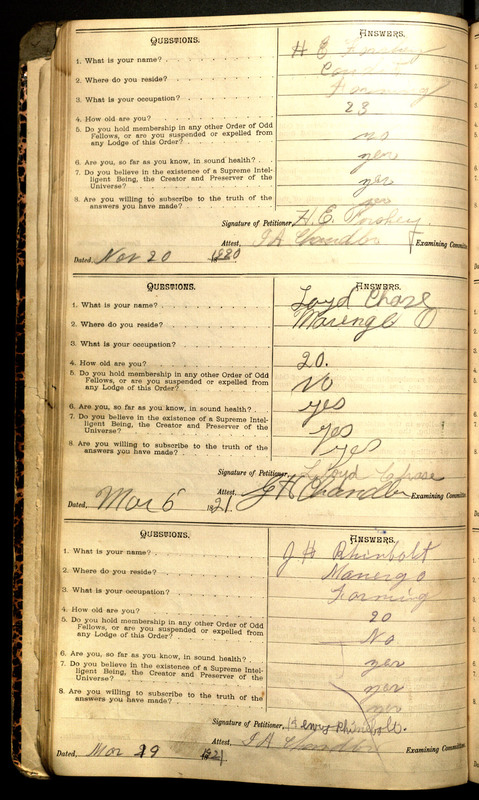 QUESTIONS. ANSWERS.
1. What is your name? H E
2. Where do you reside?
3. What is your occupation? Farming
4. How old are you? 23
5. Do you hold membership in any other Order of Odd
Fellows, or are you suspended or expelled from
any Lodge of this Order? no
6. Are you, so far as you know, in sound health? yes
7. Do you believe in the existence of a Supreme Intel-
ligent Being, the Creator and Preserver of the
Universe? yes
8. Are you willing to subscribe to the truth of the
answers you have made? yes
Signature of Petitioner, H. E.
Attest, Chandler Examining Committee
Dated, Nov 20 1920
QUESTIONS. ANSWERS.
1. What is your name? Loyd Chase
2. Where do you reside? Marengo
3. What is your occupation?
4. How old are you? 20.
5. Do you hold membership in any other Order of Odd
Fellows, or are you suspended or expelled from
any Lodge of this Order? No
6. Are you, so far as you know, in sound health? yes
7. Do you believe in the existence of a Supreme Intel-
ligent Being, the Creator and Preserver of the
Universe? yes
8. Are you willing to subscribe to the truth of the
answers you have made? yes
Signature of Petitioner, Lloyd Chase
Attest, Chandler Examining Committee
Dated, Mar 6 1921.
QUESTIONS. ANSWERS.
1. What is your name? J H Rhinbolt
2. Where do you reside? Marengo
3. What is your occupation? Farming
4. How old are you? 20
5. Do you hold membership in any other Order of Odd
Fellows, or are you suspended or expelled from
any Lodge of this Order? No
6. Are you, so far as you know, in sound health? yes
7. Do you believe in the existence of a Supreme Intel-
ligent Being, the Creator and Preserver of the
Universe? yes
8. Are you willing to subscribe to the truth of the
answers you have made? yes
Signature of Petitioner, Henry Rhinebolt.
Attest, Chandler Examining Committee
Dated, Mar 19 1921